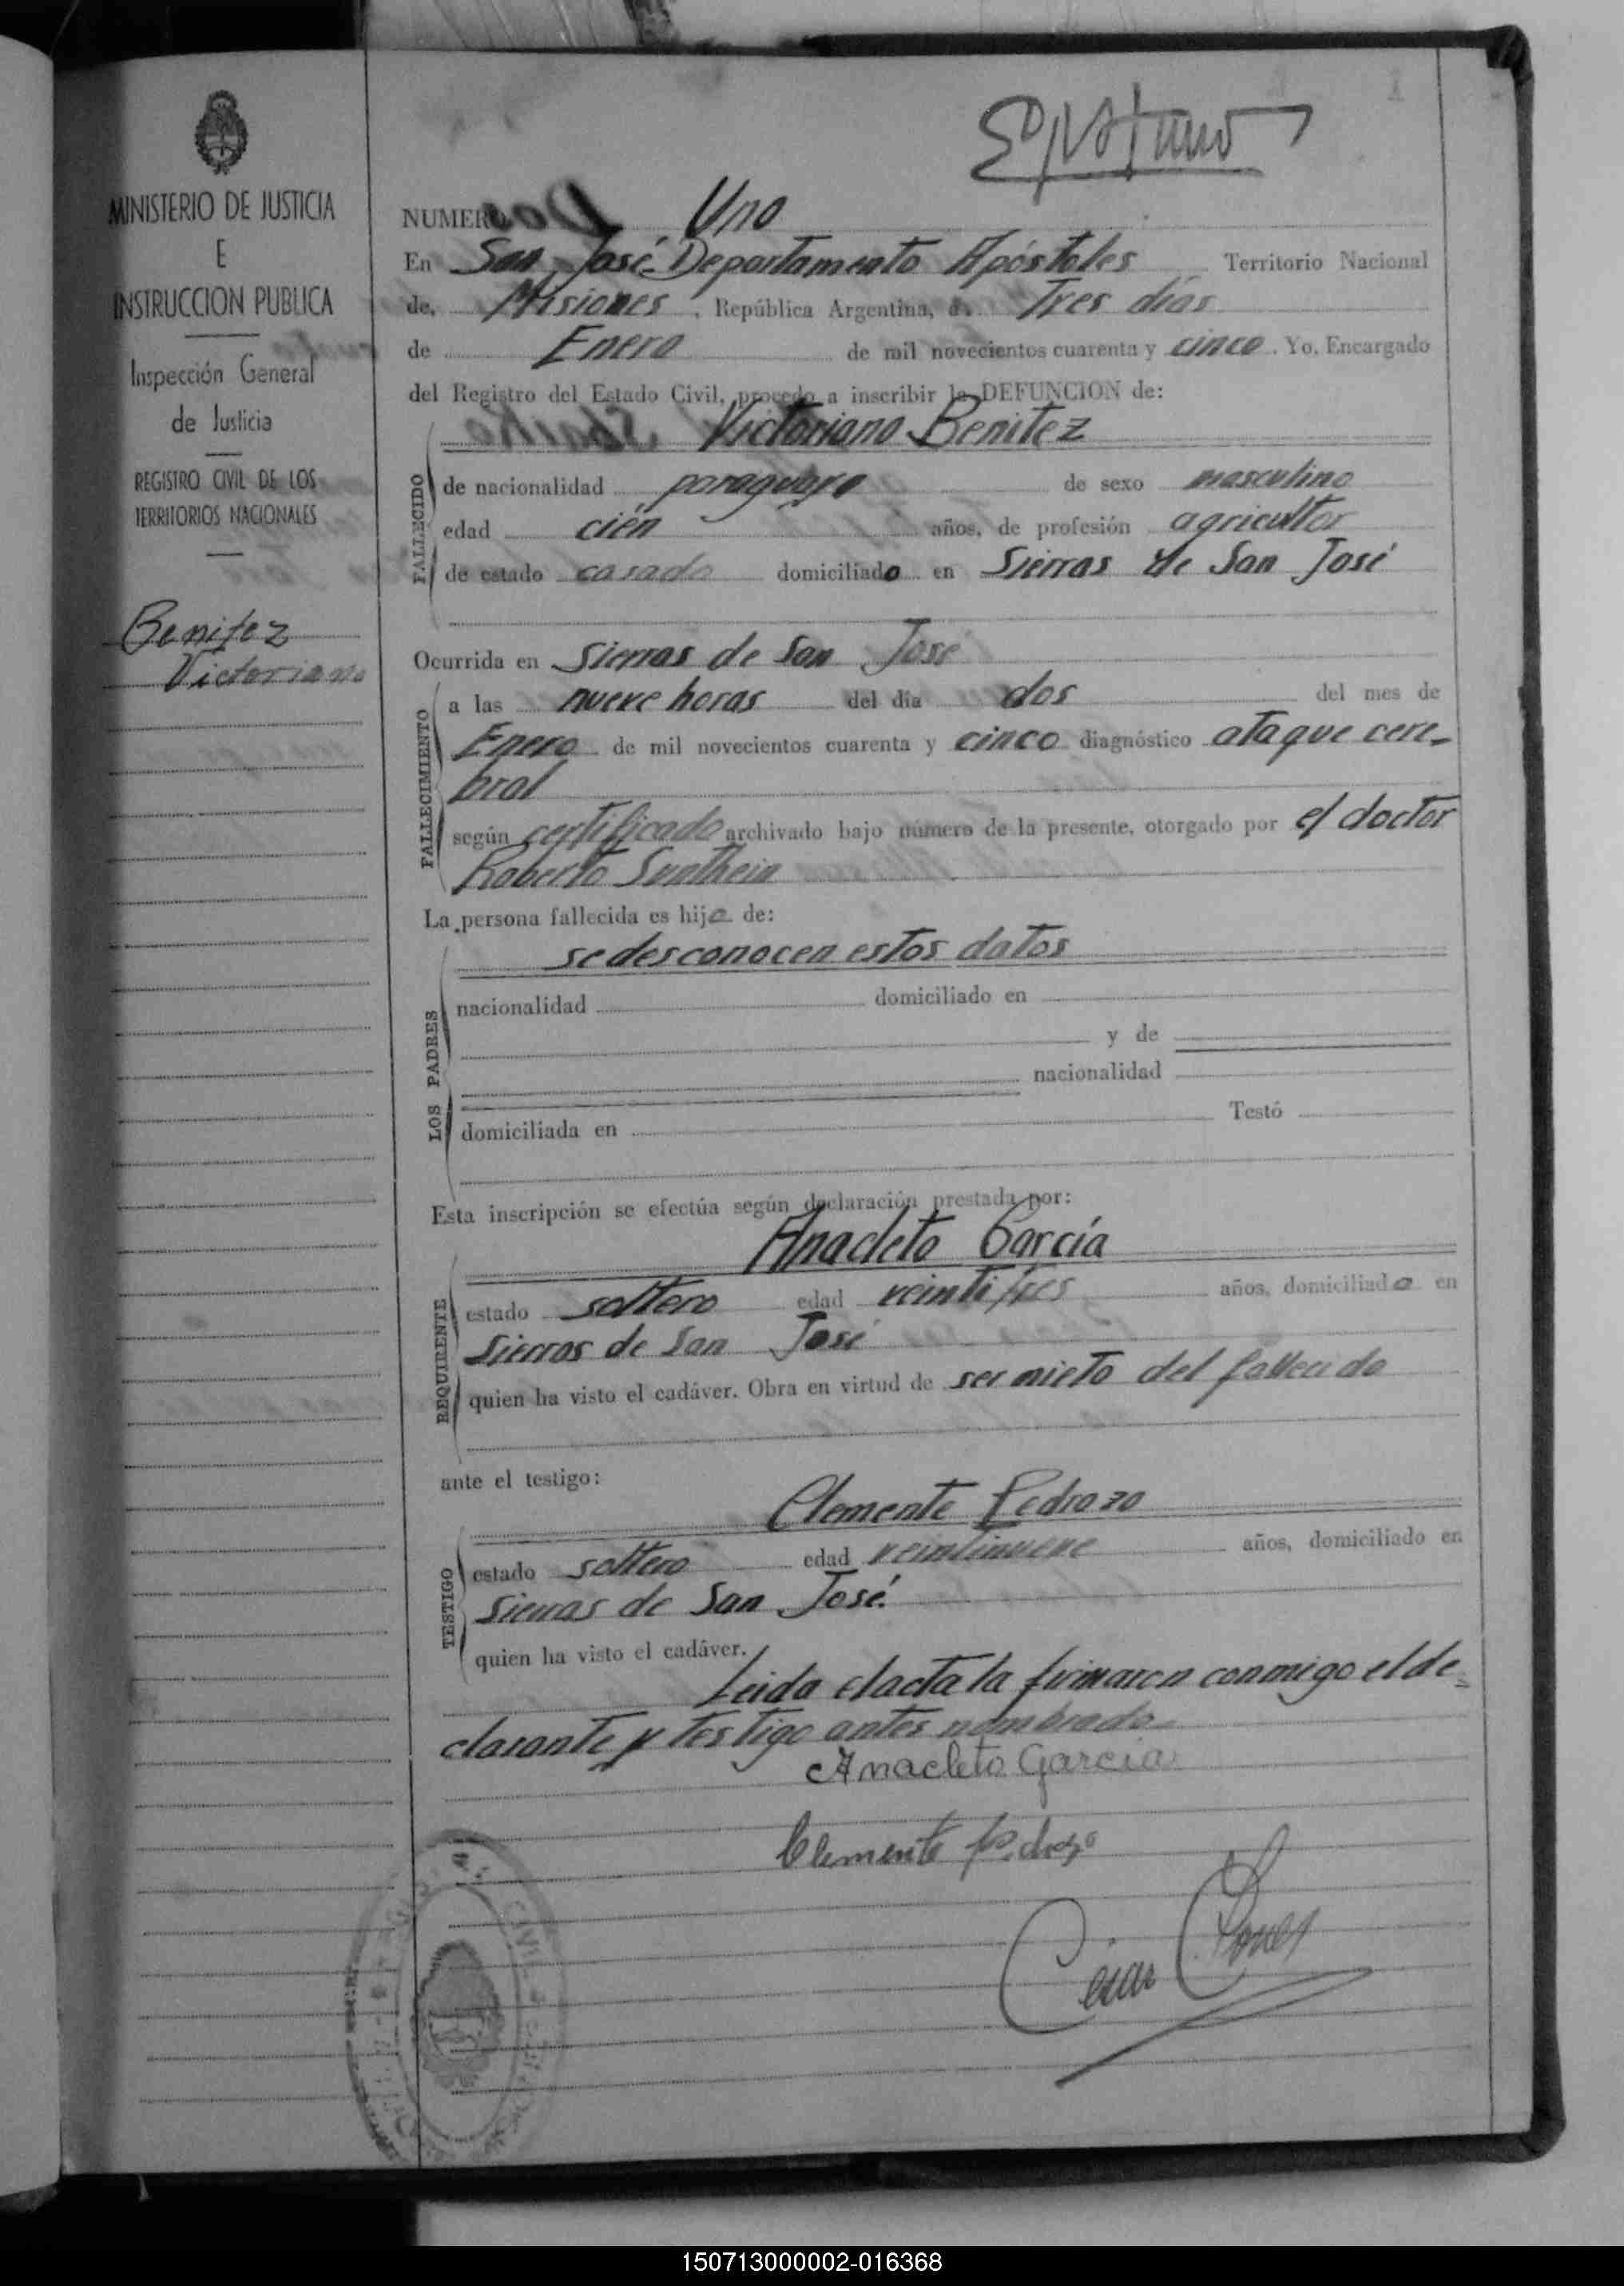 MINISTERIO DE JUSTICIA
E
INSTRUCCION PUBLICA
Inspección General
de Justicia
REGISTRO CIVIL DE LOS
TERRITORIOS NACIONALES
Benitez
Victoriano
NUMERO Uno
En San José Departamento Apóstoles Territorio Nacional
de, Misiones, República Argentina, a Tres días
de Enero de mil novecientos cuarenta y cinco. Yo, Encargado
del Registro del Estado Civil, procedo a inscribir la DEFUNCION de:
Victoriano Benitez
FALLECIDO
de nacionalidad paraguayo de sexo masculino
edad cién años, de profesión agricultor
de estado casado domiciliado en Sierras de San José
Ocurrida en Sierras de San José
FALLECIMIENTO
a las nueve horas del día dos del mes de
Enero de mil novecientos cuarenta y cinco diagnóstico ataque cere-
bral
según certificado archivado bajo número de la presente, otorgado por el doctor
Roberto
La persona fallecida es hijo de:
se desconocen estos datos
LOS PADRES
nacionalidad domiciliado en
y de
nacionalidad
domiciliada en Testó
Esta inscripción se efectúa según declaración prestada por:
Anacleto García
REQUIRENTE
estado soltero edad veintitres años, domiciliado en
Sierras de San José
quien ha visto el cadáver. Obra en virtud de ser nieto del fallecido
ante el testigo:
Clemente Pedrozo
TESTIGO
estado soltero edad veintinueve años, domiciliado en
Sierras de San José.
quien ha visto el cadáver.
Leida el acta la firmaron conmigo el de=
clarante y testigo antes nombrado
Anacleto Garcia
Clemente Pedrozo
150713000002-016368